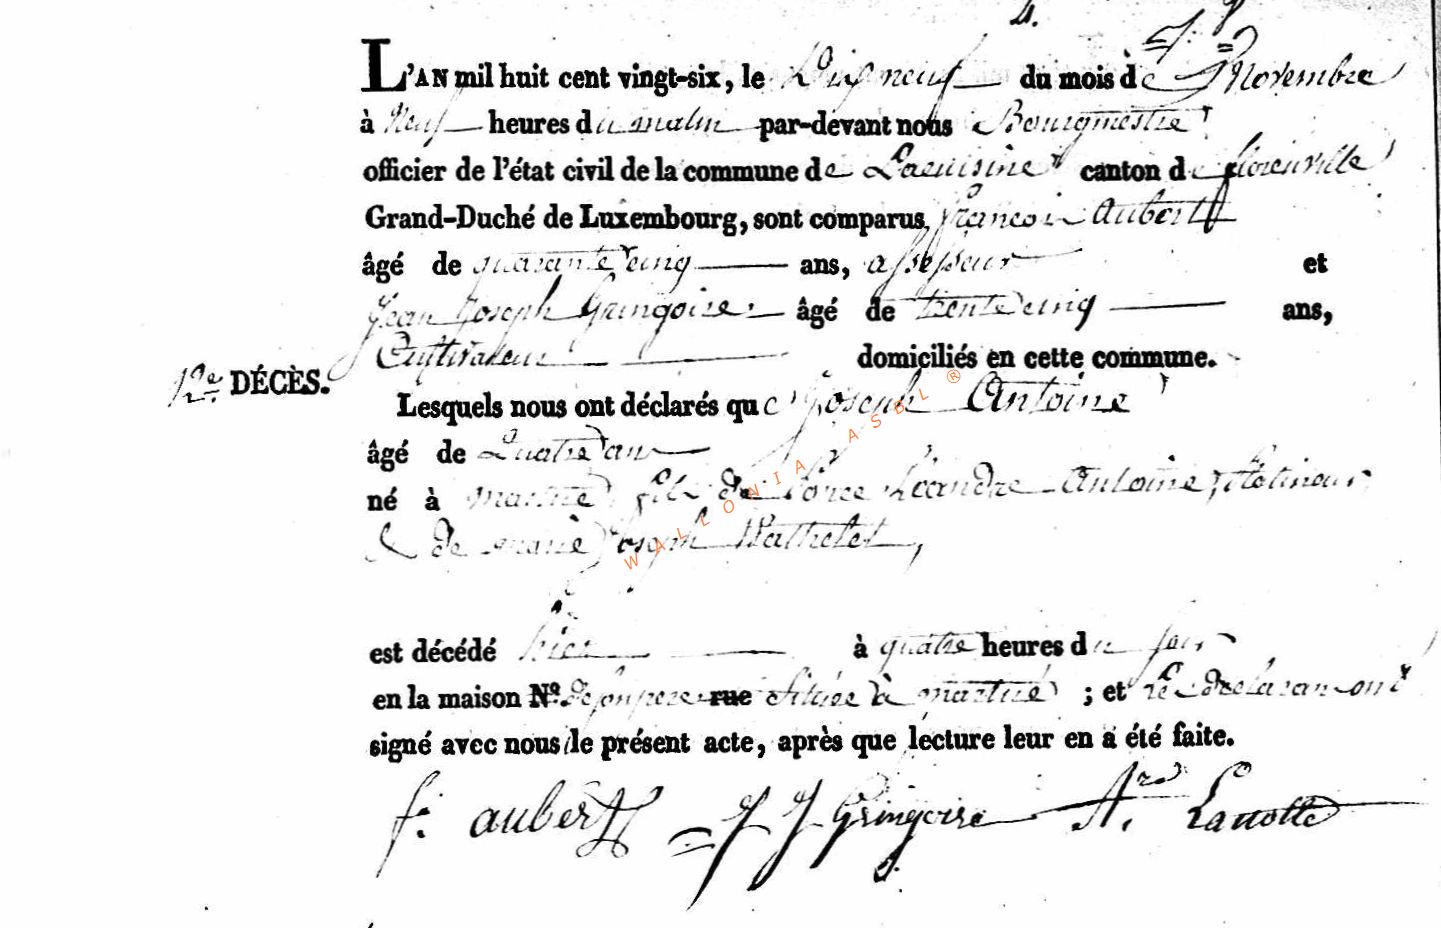 4.
L'AN mil huit cent vingt-six, le Dixneuf du mois de Novembre
à Neuf heures du matin par-devant nous Bourgmestre
officier de l'état civil de la commune de Lacuisine canton de florenville
Grand-Duché de Luxembourg, sont comparus, françois Aubert
âgé de quarante cinq ans, assesseur et
Jean Joseph Gringoire âgé de trente cinq ans,
Cultivateur domiciliés en cette commune.
12e DÉCÈS.
Lesquels nous ont déclarés que Joseph Antoine
âgé de Quatre an
né à martué fils de Pierre Léandre Antoine,
& de marie Joseph Wathelet,
est décédé hier à quatre heures du soir
en la maison No. de son pere rue située à martué ; et les déclarans ont
signé avec nous le présent acte, après que lecture leur en a été faite.
f: aubert J J Gringoire A. Lanotte
WALLONIA ASBL ®